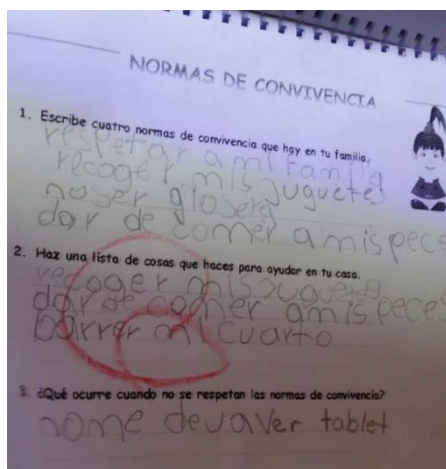 NORMAS DE CONVIVENCIA
1. Escribe cuatro normas de convivencia que hay en tu familia.
respetar a mi familia
recoger mis juguetes
noser glosera
dar de comer a mis pece
2. Haz una lista de cosas que haces para ayudar en tu casa.
recoger mis juguetes
dar de comer a mis peces
barrer mi cuarto
3. ¿Qué ocurre cuando no se respetan las normas de convivencia?
nome devaver tablet